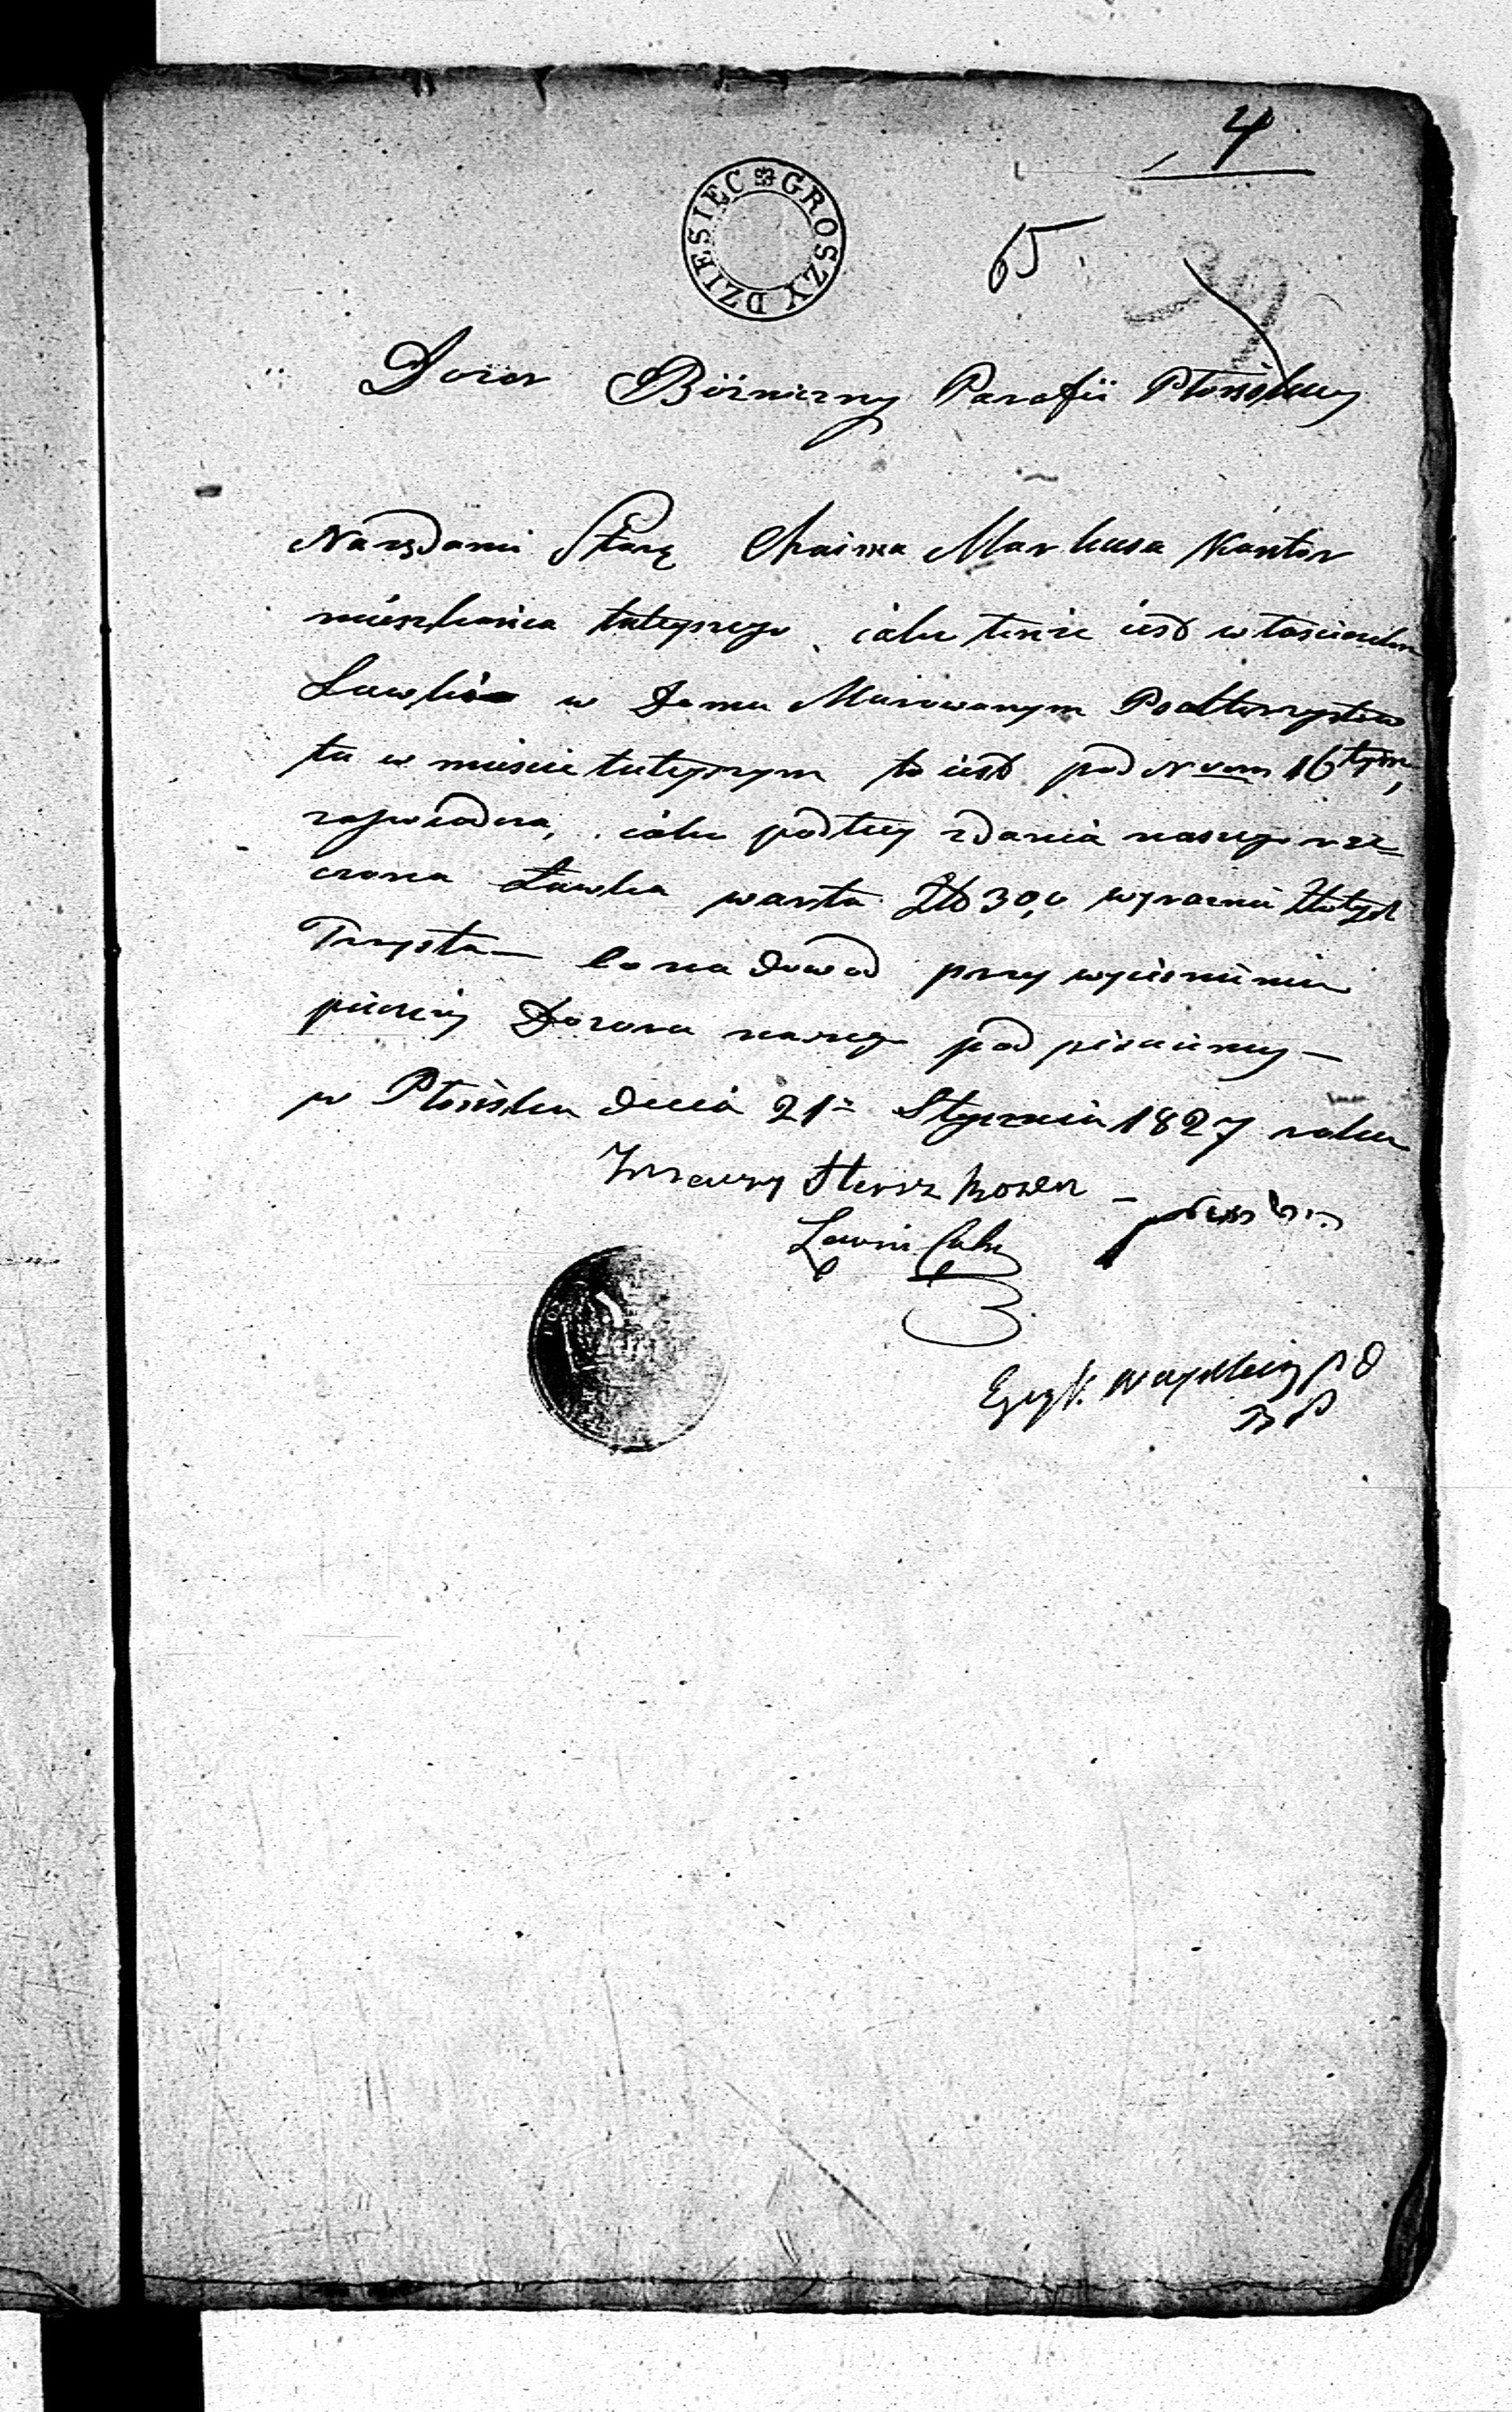 4
65.
DZIESIĘC GROSZY
Dozor Bóżniczny Parafii Płońskiey
Na żądanie Starę Chaima Markusa Kantor
mieszkańca tuteyszego, iako tenże iest właścicielem
Ławki w Domu Murowanym
tu w mieście tuteyszym to iest pod Nrem 16tym,
zaświadcza, iako podług zdania naszego rze=
czona Ławka warta Zło 300 wyraźnie Złotych
Trzysta — Co na dowód przy wyciśnieniu
pieczęci Dozoru naszego podpisuiemy —
w Płońsku dnia 21= Stycznia 1827 roku
Hersz
Lewin